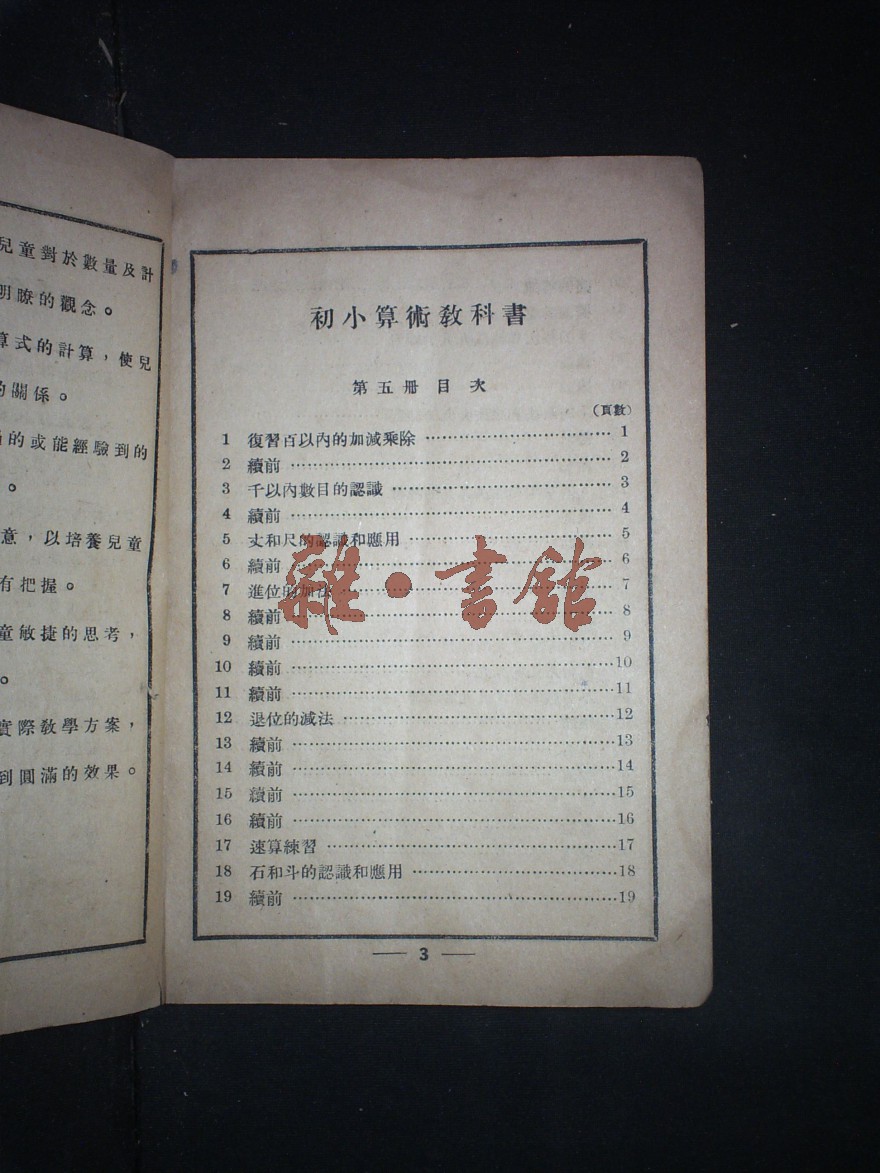 兒童對於數量及計
明瞭的觀念。
算式的計算，使兒
的關係。
的或能經驗到的
。
意，以培養兒童
有把握。
童敏捷的思考，
。
實際教學方案，
到圓滿的效果。
初小算術教科書
第五冊 目次
(頁數)
1 復習百以內的加減乘除 ………… 1
2 續前 ………… 2
3 千以內數目的認識 ………… 3
4 續前 ………… 4
5 丈和尺的認識和應用 ………… 5
6 續前 ………… 6
7 進位的加法 ………… 7
8 續前 ………… 8
9 續前 ………… 9
10 續前 ………… 10
11 續前 ………… 11
12 退位的減法 ………… 12
13 續前 ………… 13
14 續前 ………… 14
15 續前 ………… 15
16 續前 ………… 16
17 速算練習 ………… 17
18 石和斗的認識和應用 ………… 18
19 續前 ………… 19
— 3 —
雜·書館